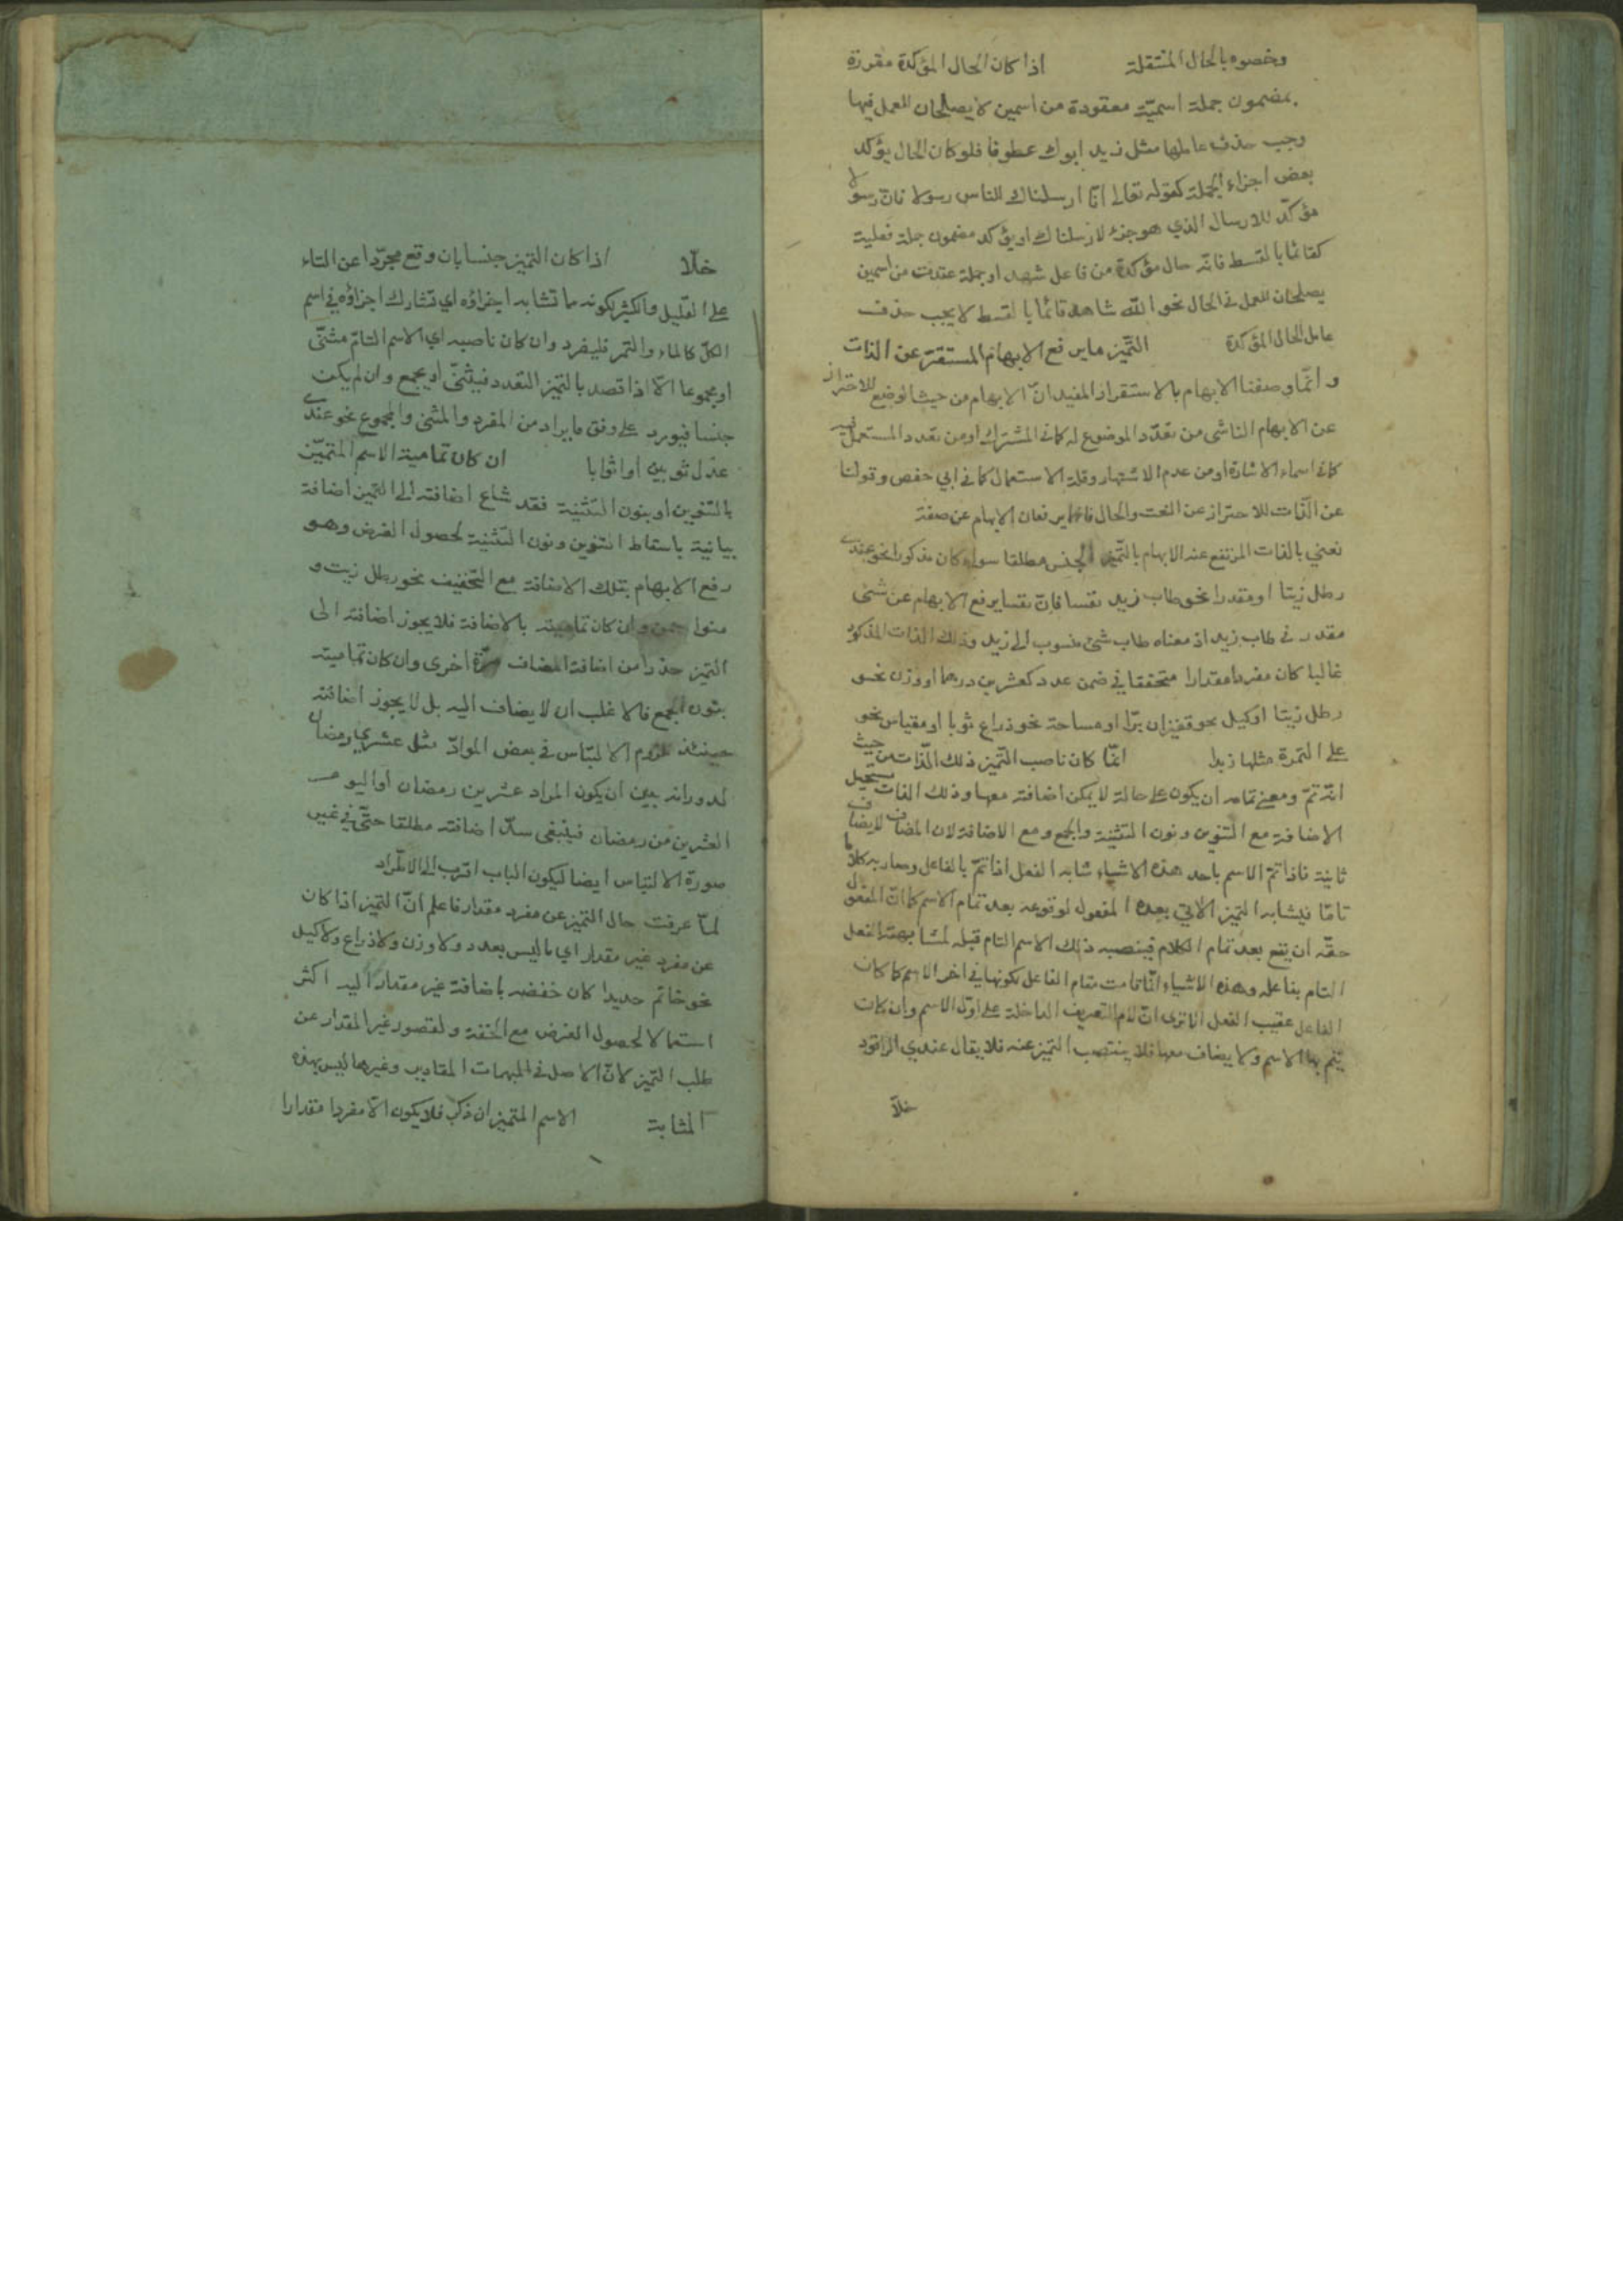 وخصوه بالحال المنتقلة اذا كان الحال المؤكدة مقررة
بمضمون جملة اسميّة معقودة من اسمين لا يصلحان للعمل فيها
وجب حذف عاملها مثل زيد ابوك عطوفا فلو كان الحال يؤكد
بعض اجزاء الجملة كقوله تعالى انّا ارسلناك للناس رسولا فانّ رسولا
مؤكّد للارسال الذي هو جزء لارسلناك او يؤكد مضمون جملة فعلية
كقائما بالقسط فانّه حال مؤكدة من فاعل شهد او جملة عقدت من اسمين
يصلحان للعمل في الحال نحو اللّه شاهد قائما بالقسط لا يجب حذف
عامل الحال المؤكدة التّميز ما يرفع الابهام المستقرّ عن الذات
و انّما وصفنا الابهام بالاستقرار المفيد انّ الابهام من حيث الوضع للاحتراز
عن الابهام الناشى من تعدّد الموضوع له كما في المشترك او من تعدد المستعمل فيه
كما في اسماء الاشارة او من عدم الاشتهار وقلة الاستعمال كما في ابي حفص وقولنا
عن الذّات للاحتراز عن النعت والحال فانّهما يرفعان الابهام عن صفة
نعني بالذات المرتفع عنه الابهام بالتّميز الجنس مطلقا سواء كان مذكورا نحو عندي
رطل زيتا او مقدرا نحو طاب زيد نفسا فانّ نفسا يرفع الابهام عن شئ
مقدر في طاب زيد اذ معناه طاب شئ منسوب الى زيد وذلك الذات المذكور
غالبا كان مفردا مقدارا متحققا في ضمن عدد كعشرين درهما او وزن نحو
رطل زيتا او كيل نحو قفيزان برّا او مساحة نحو ذراع ثوبا او مقياس نحو
على التمرة مثلها زبدا انّما كان ناصب التّميز ذلك الذّات من حيث
انّه تمّ ومعنى تمامه ان يكون على حالة لا يمكن اضافته معها وذلك الذات يستحيل
الاضافة مع التنوين ونون التثنية والجمع ومع الاضافة لان المضاف لا يضاف
ثانية فاذا تمّ الاسم باحد هذه الاشياء شابه الفعل اذا تمّ بالفاعل وصار به كلاما
تامّا فيشابه التميز الآتي بعده المفعول لوقوعه بعد تمام الاسم كما انّ المفعول
حقّه ان يقع بعد تمام الكلام فينصبه ذلك الاسم التام قبله لمشابهته الفعل
التام بفاعله وهذه الاشياء انّما قامت مقام الفاعل لكونها في اخر الاسم كما كان
الفاعل عقيب الفعل الا ترى انّ لام التعريف الداخلة على اوّل الاسم وان كانت
يتم بها الاسم ولا يضاف معها فلا ينتصب التميز عنه فلا يقال عندي الراقود
خلّا
خلّا اذا كان التميز جنسا بان وقع مجرّدا عن التاء
على القليل والكثير لكونه ما تشابه اجزاؤه اي تشارك اجزاؤه في اسم
الكلّ كالماء والتمر فليفرد وان كان ناصبه اي الاسم التّامّ مثنّى
او مجموعا الّا اذا قصد بالتميز التعدد فيثنّى او يجمع وان لم يكن
جنسا فيورد على وفق ما يراد من المفرد والمثنى والمجموع نحو عندي
عدل ثوبين او اثوابا ان كان تمامية الاسم المتميّز
بالتنوين او بنون التثنية فقد شاع اضافته الى التميز اضافة
بيانية باسقاط التنوين ونون التثنية لحصول الغرض وهو
رفع الابهام بتلك الاضافة مع التخفيف نحو رطل زيت و
منوا سمن وان كان تماميته بالاضافة فلا يجوز اضافته الى
التميز حذرا من اضافة المضاف مرّة اخرى وان كان تماميته
بنون الجمع فالاغلب ان لا يضاف اليه بل لا يجوز اضافته
حينئذ للزوم الالتباس في بعض الموادّ مثل عشري رمضان
لدورانه بين ان يكون المراد عشرين رمضان او اليوم
العشرين من رمضان فينبغي سدّ اضافته مطلقا حتّى في غير
صورة الالتباس ايضا ليكون الباب اقرب الى الاطّراد
لمّا عرفت حال التميز عن مفرد مقدار فاعلم انّ التميز اذا كان
عن مفرد غير مقدار اي ما ليس بعدد ولا وزن ولا ذراع ولا كيل
نحو خاتم حديدا كان خفضه باضافة غير مقدار اليه اكثر
استعمالا لحصول الغرض مع الخفة ولقصور غير المقدار عن
طلب التميز لانّ الاصل في المبهمات المقادير وغيرها ليس بهذه
المثابة الاسم المتميز ان ذكر فلا يكون الّا مفردا مقدارا